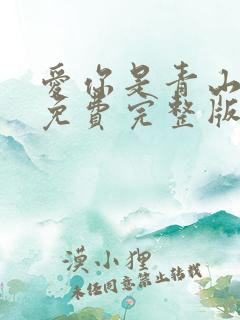 愛你是青山
免費完整版
漠小狸
未经同意禁止转载